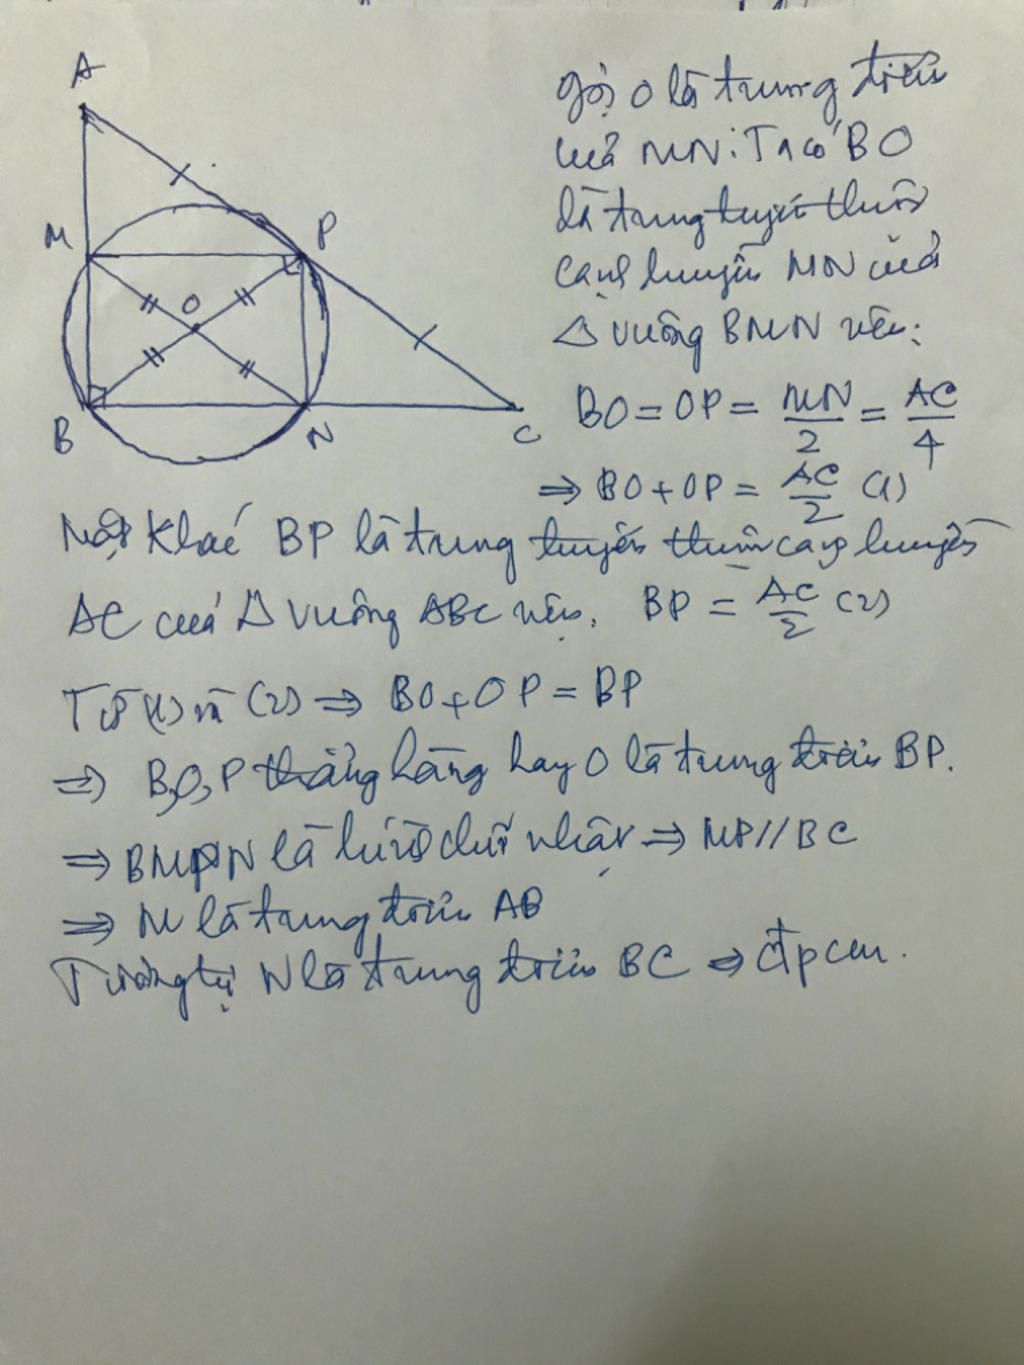 A
M
P
O
B
N
C
gọi O là trung điểm
của MN. Ta có BO
là trung tuyến thuộc
cạnh huyền MN của
Δ vuông BMN nên:
BO = OP = MN/2 = AC/4
⇒ BO + OP = AC/2 (1)
Mặt Khác BP là trung tuyến thuộc cạnh huyền
AC của Δ vuông ABC nên. BP = AC/2 (2)
Từ (1) và (2) ⇒ BO + OP = BP
⇒ B,O,P thẳng hàng hay O là trung điểm BP.
⇒ BMPN là hình chữ nhật ⇒ MP // BC
⇒ M là trung điểm AB
Tương tự N là trung điểm BC ⇒ đpcm.